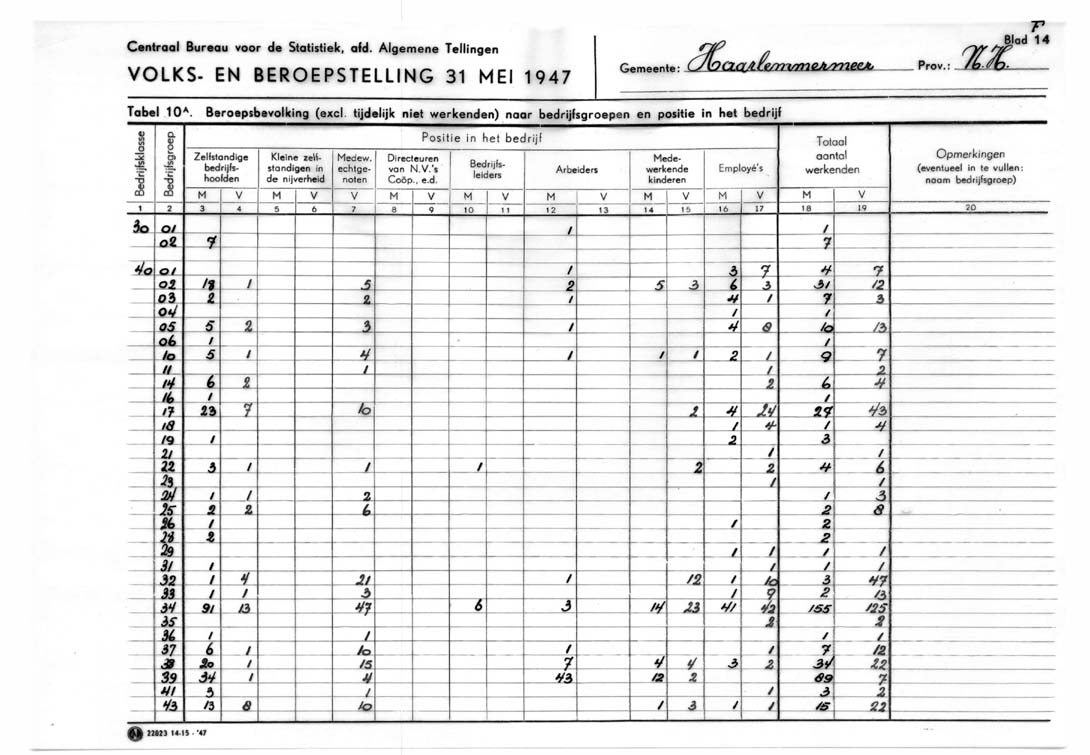 F
Blad 14
Centraal Bureau voor de Statistiek, afd. Algemene Tellingen
VOLKS- EN BEROEPSTELLING 31 MEI 1947
Gemeente: Haarlemmermeer Prov.: N.H.
Tabel 10A. Beroepsbevolking (excl. tijdelijk niet werkenden) naar bedrijfsgroepen en positie in het bedrijf
Bedrijfsklasse Bedrijfsgroep Positie in het bedrijf Totaal aantal werkenden Opmerkingen (eventueel in te vullen: naam bedrijfsgroep)
Zelfstandige bedrijfs-hoofden Kleine zelf-standigen in de nijverheid Medew. echtge-noten Directeuren van N.V.'s Coöp., e.d. Bedrijfs-leiders Arbeiders Mede-werkende kinderen Employé's
M V M V V M V M V M V M V M V M V
1 2 3 4 5 6 7 8 9 10 11 12 13 14 15 16 17 18 19 20
30 01 1 1
02 7 7
40 01 1 3 7 4 7
02 18 1 5 2 5 3 6 3 31 12
03 2 2 1 4 1 7 3
04 1 1
05 5 2 3 1 4 8 10 13
06 1 1
10 5 1 4 1 1 1 2 1 9 7
11 1 1 2
14 6 2 2 6 4
16 1 1
17 23 7 10 2 4 24 27 43
18 1 4 1 4
19 1 2 3
21 1 1
22 3 1 1 1 2 2 4 6
23 1 1
24 1 1 2 1 3
25 2 2 6 2 8
26 1 1 2
28 2 2
29 1 1 1 1
31 1 1 1 1
32 1 4 21 1 12 1 10 3 47
33 1 1 3 1 9 2 13
34 91 13 47 6 3 14 23 41 42 155 125
35 2 2
36 1 1 1 1
37 6 1 10 1 1 7 12
38 20 1 15 7 4 4 3 2 34 22
39 34 1 4 43 12 2 89 7
41 3 1 1 3 2
43 13 8 10 1 3 1 1 15 22
22823 14-15 - '47